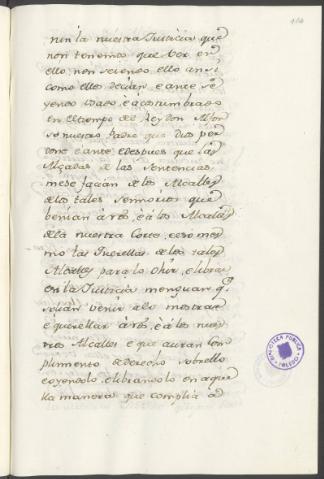 164
nin la nuestra Justicia que
non tenemos que ver en
ello, non seiendo ello ansi
como ellos decian e ante se
yendo usado, e acostumbrado
en el tiempo del Rey don Alfon
so nuestro Padre que Dios per
done e ante, e despues que las
Alçadas de las Sentencias
mese façian de los Alcalles
de los tales Senorios que
benian a nos, e a los Alcalles
de la nuestra Corte, e eso mes
mo las Querellas de los tales
Alcalles para lo ohir, e librar
en la Justicia menguan qe
solian venir a lo mostrar
e querellar a nos, e a los nues
tros Alcalles e que auran com
plimiento de derecho sobrello
oyendolo, e librandolo en aque
lla manera que complia a
BIBLIOTECA PUBLICA
TOLEDO